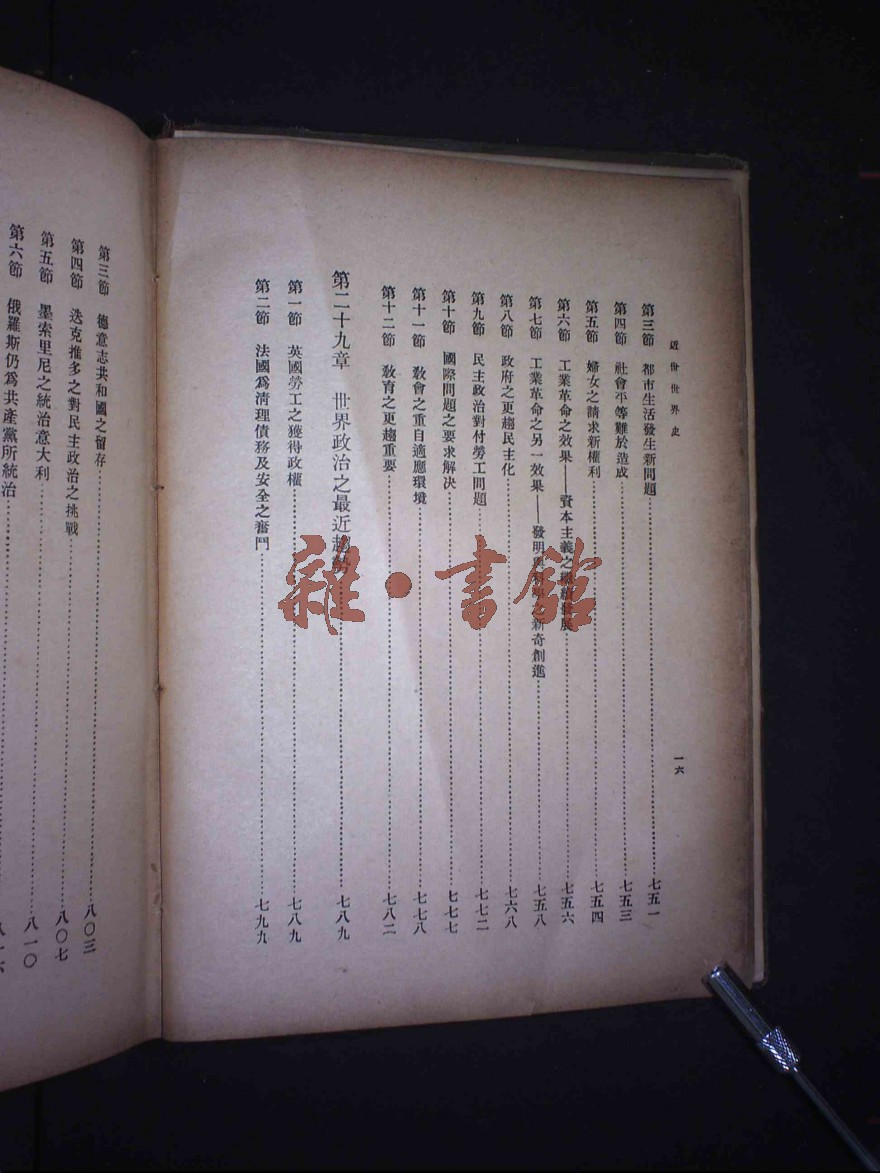 近世世界史
一六
第三節 都市生活發生新問題……七五一
第四節 社會平等難於造成……七五三
第五節 婦女之請求新權利……七五四
第六節 工業革命之效果——資本主義之繼續發展……七五六
第七節 工業革命之另一效果——發明與之新奇創進……七五八
第八節 政府之更趨民主化……七六八
第九節 民主政治對付勞工問題……七七二
第十節 國際問題之要求解決……七七七
第十一節 教會之重自適應環境……七七八
第十二節 教育之更趨重要……七八二
第二十九章 世界政治之最近趨勢……七八九
第一節 英國勞工之獲得政權……七八九
第二節 法國爲清理債務及安全之奮鬥……七九九
第三節 德意志共和國之留存……八〇三
第四節 迭克推多之對民主政治之挑戰……八〇七
第五節 墨索里尼之統治意大利……八一〇
第六節 俄羅斯仍爲共產黨所統治……八一六
雜·書館